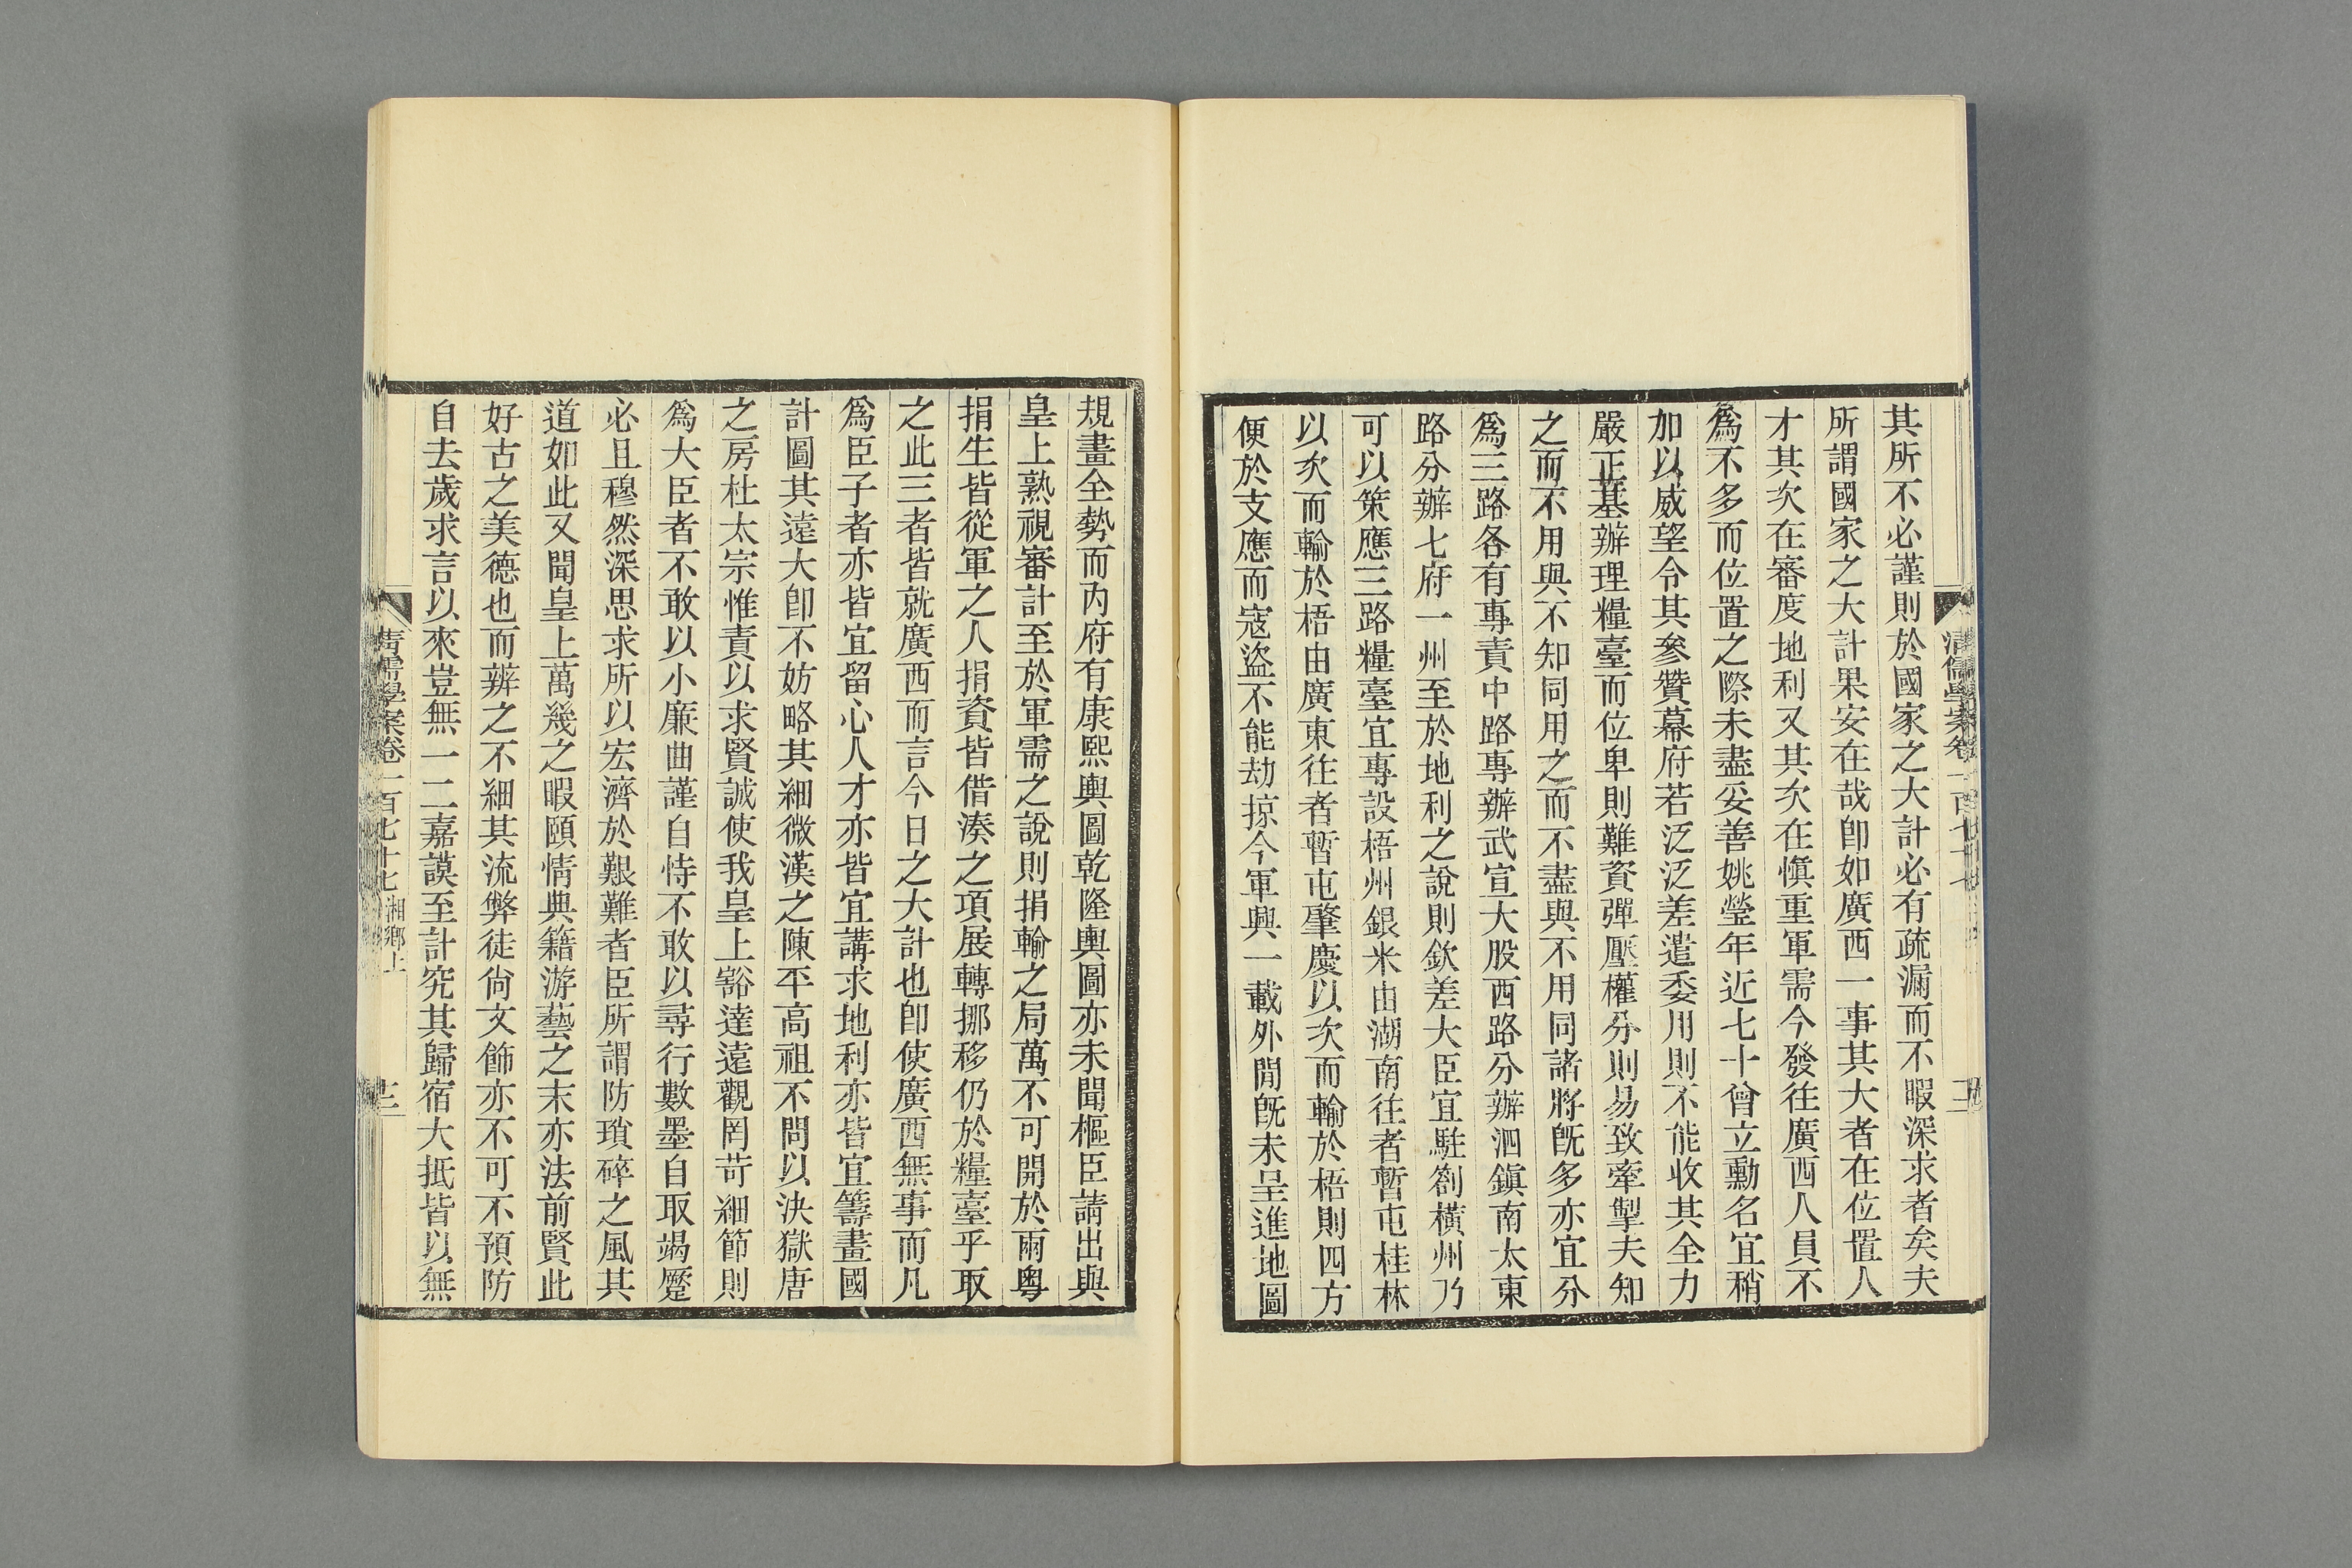 其所不必謹則於國家之大計必有疏漏而不暇深求者矣夫
所謂國家之大計果安在哉卽如廣西一事其大者在位置人
才其次在審度地利又其次在愼重軍需今發往廣西人員不
爲不多而位置之際未盡妥善姚瑩年近七十曾立勳名宜稍
加以威望令其參贊幕府若泛泛差遣委用則不能收其全力
嚴正基辦理糧臺而位卑則難資彈壓權分則易致牽掣夫知
之而不用與不知同用之而不盡與不用同諸將旣多亦宜分
爲三路各有專責中路專辦武宣大股西路分辦泗鎭南太東
路分辦七府一州至於地利之說則欽差大臣宜駐劄橫州乃
可以策應三路糧臺宜專設梧州銀米由湖南往者暫屯桂林
以次而輸於梧由廣東往者暫屯肇慶以次而輸於梧則四方
便於支應而寇盜不能劫掠今軍興一載外閒旣未呈進地圖
清儒學案卷一百七十七
規畫全勢而內府有康熙輿圖乾隆輿圖亦未聞樞臣請出與
皇上熟視審計至於軍需之說則捐輸之局萬不可開於兩粵
捐生皆從軍之人捐資皆借湊之項展轉挪移仍於糧臺乎取
之此三者皆就廣西而言今日之大計也卽使廣西無事而凡
爲臣子者亦皆宜留心人才亦皆宜講求地利亦皆宜籌畫國
計圖其遠大卽不妨略其細微漢之陳平高祖不問以決獄唐
之房杜太宗惟責以求賢誠使我皇上豁達遠觀罔苛細節則
爲大臣者不敢以小廉曲謹自恃不敢以尋行數墨自取竭蹷
必且穆然深思求所以宏濟於艱難者臣所謂防瑣碎之風其
道如此又聞皇上萬幾之暇頤情典籍游藝之末亦法前賢此
好古之美德也而辨之不細其流弊徒尙文飾亦不可不預防
自去歲求言以來豈無一二嘉謨至計究其歸宿大抵皆以無
清儒學案卷一百七十七 湘鄉上